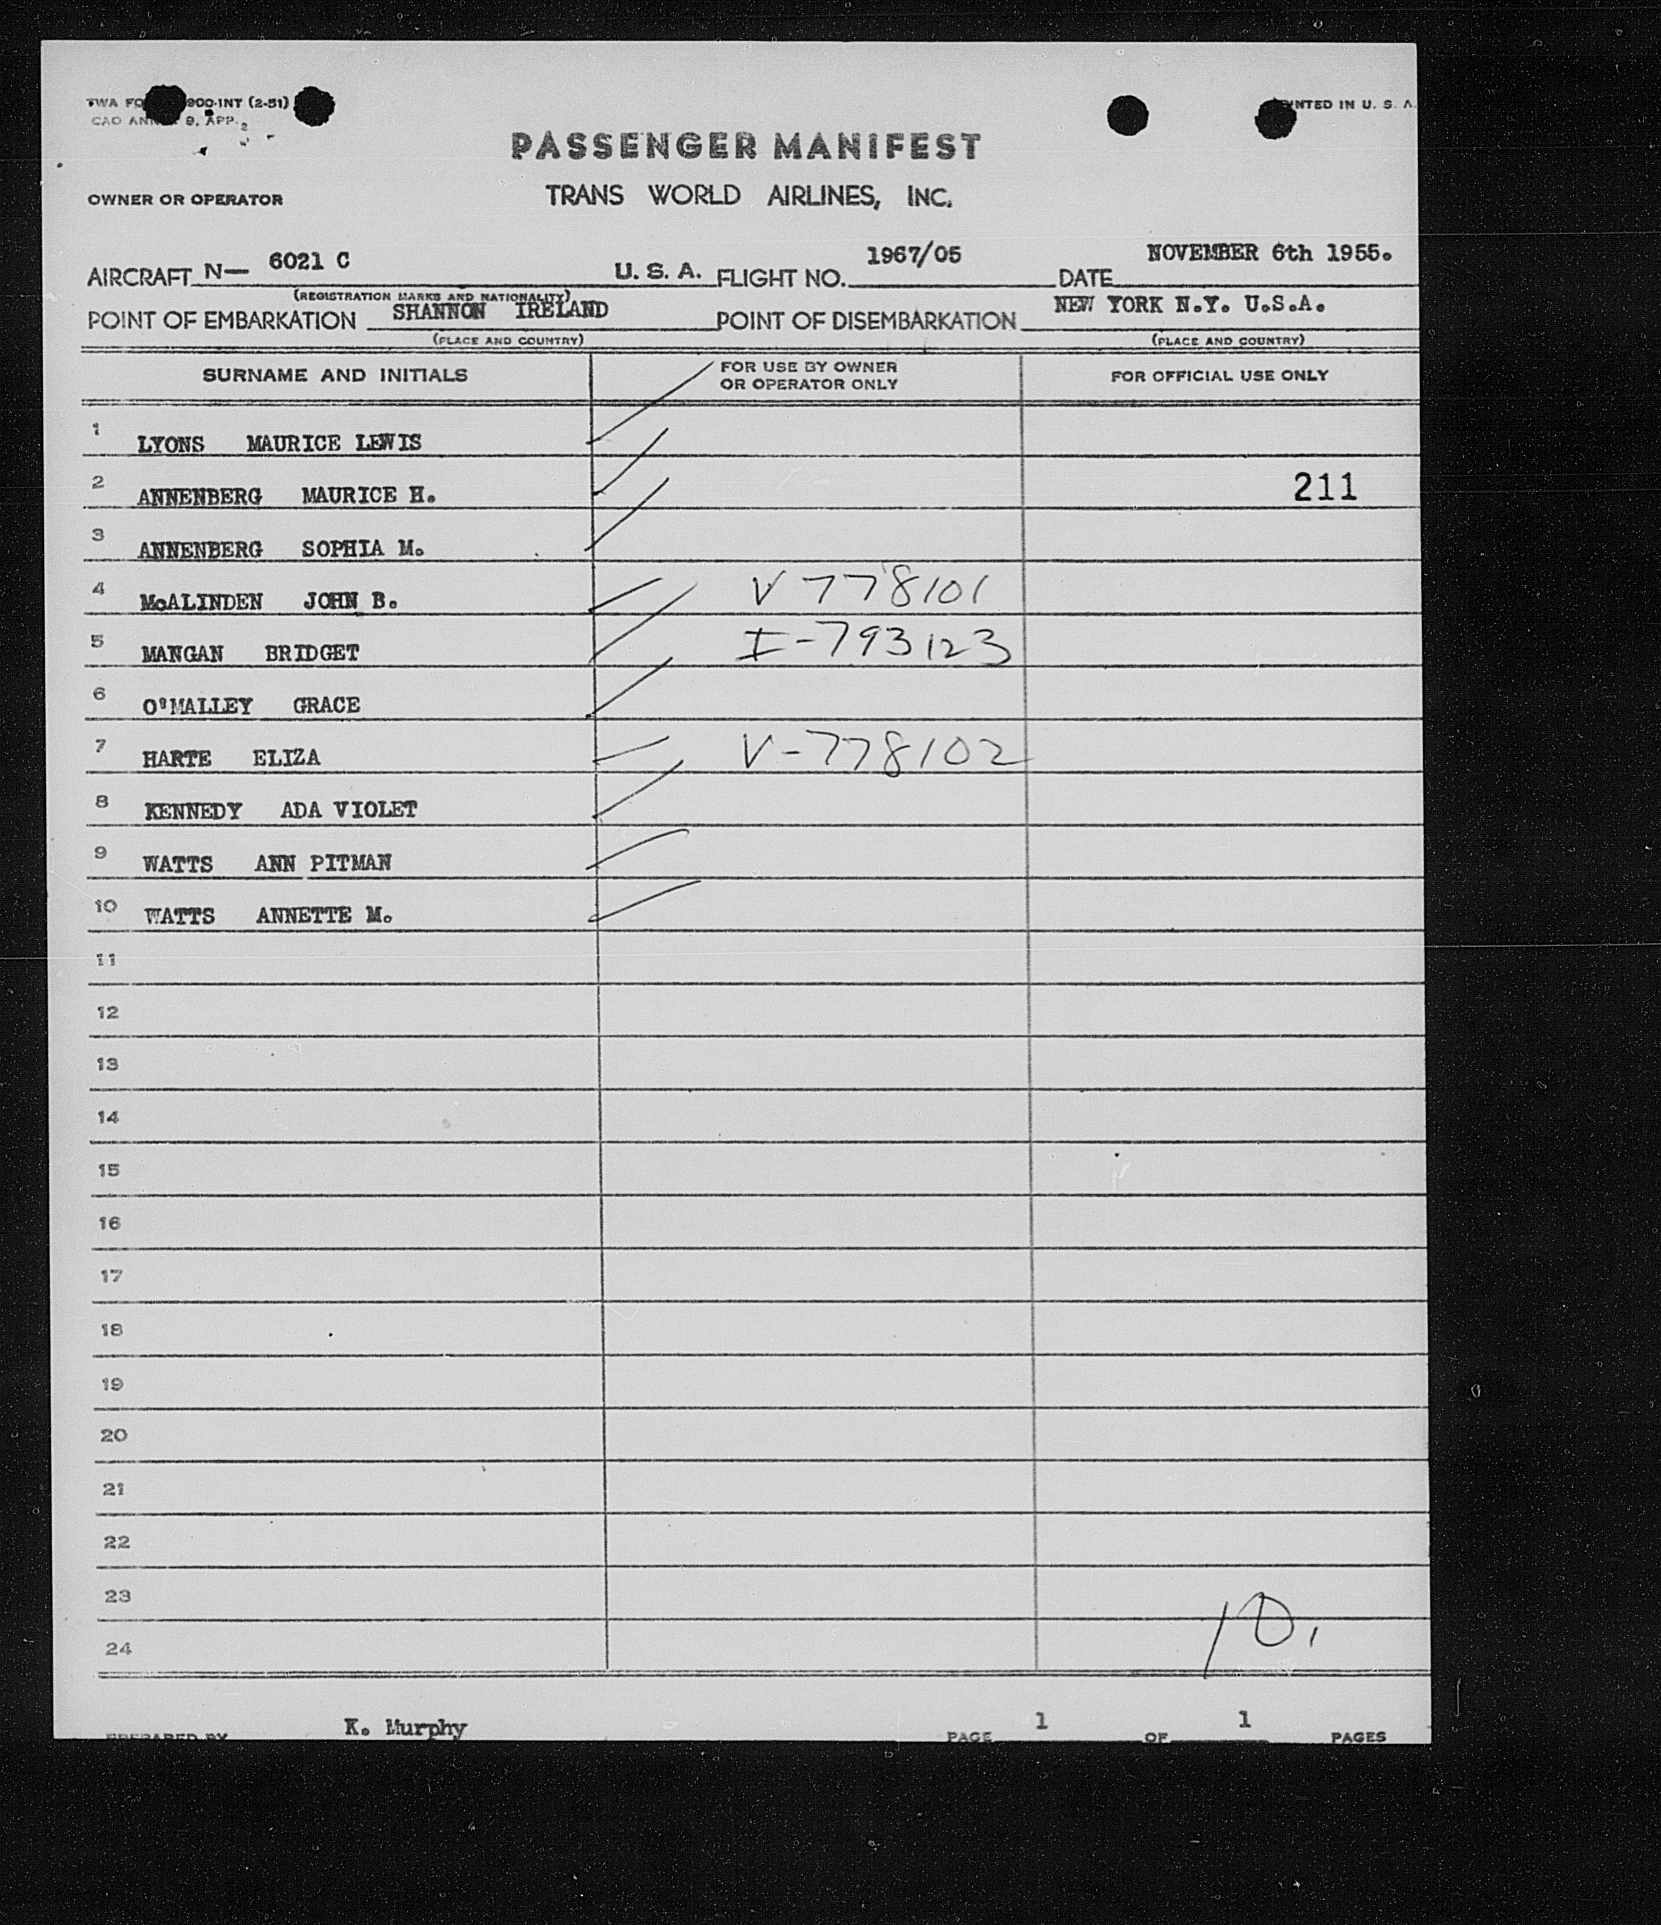 TWA FO 900-INT (2-51)
CAO ANN 9, APP. 2
NTED IN U. S. A.
PASSENGER MANIFEST
OWNER OR OPERATOR TRANS WORLD AIRLINES, INC.
AIRCRAFT N— 6021 C U. S. A. FLIGHT NO. 1967/05 DATE NOVEMBER 6th 1955.
(REGISTRATION MARKS AND NATIONALITY)
POINT OF EMBARKATION SHANNON IRELAND POINT OF DISEMBARKATION NEW YORK N.Y. U.S.A.
(PLACE AND COUNTRY) (PLACE AND COUNTRY)
SURNAME AND INITIALS FOR USE BY OWNER OR OPERATOR ONLY FOR OFFICIAL USE ONLY
1 LYONS MAURICE LEWIS
2 ANNENBERG MAURICE H. 211
3 ANNENBERG SOPHIA M.
4 McALINDEN JOHN B. V 778101
5 MANGAN BRIDGET I-793123
6 O'MALLEY GRACE
7 HARTE ELIZA V-778102
8 KENNEDY ADA VIOLET
9 WATTS ANN PITMAN
10 WATTS ANNETTE M.
11
12
13
14
15
16
17
18
19
20
21
22
23
24
10,
PREPARED BY K. Murphy PAGE 1 OF 1 PAGES